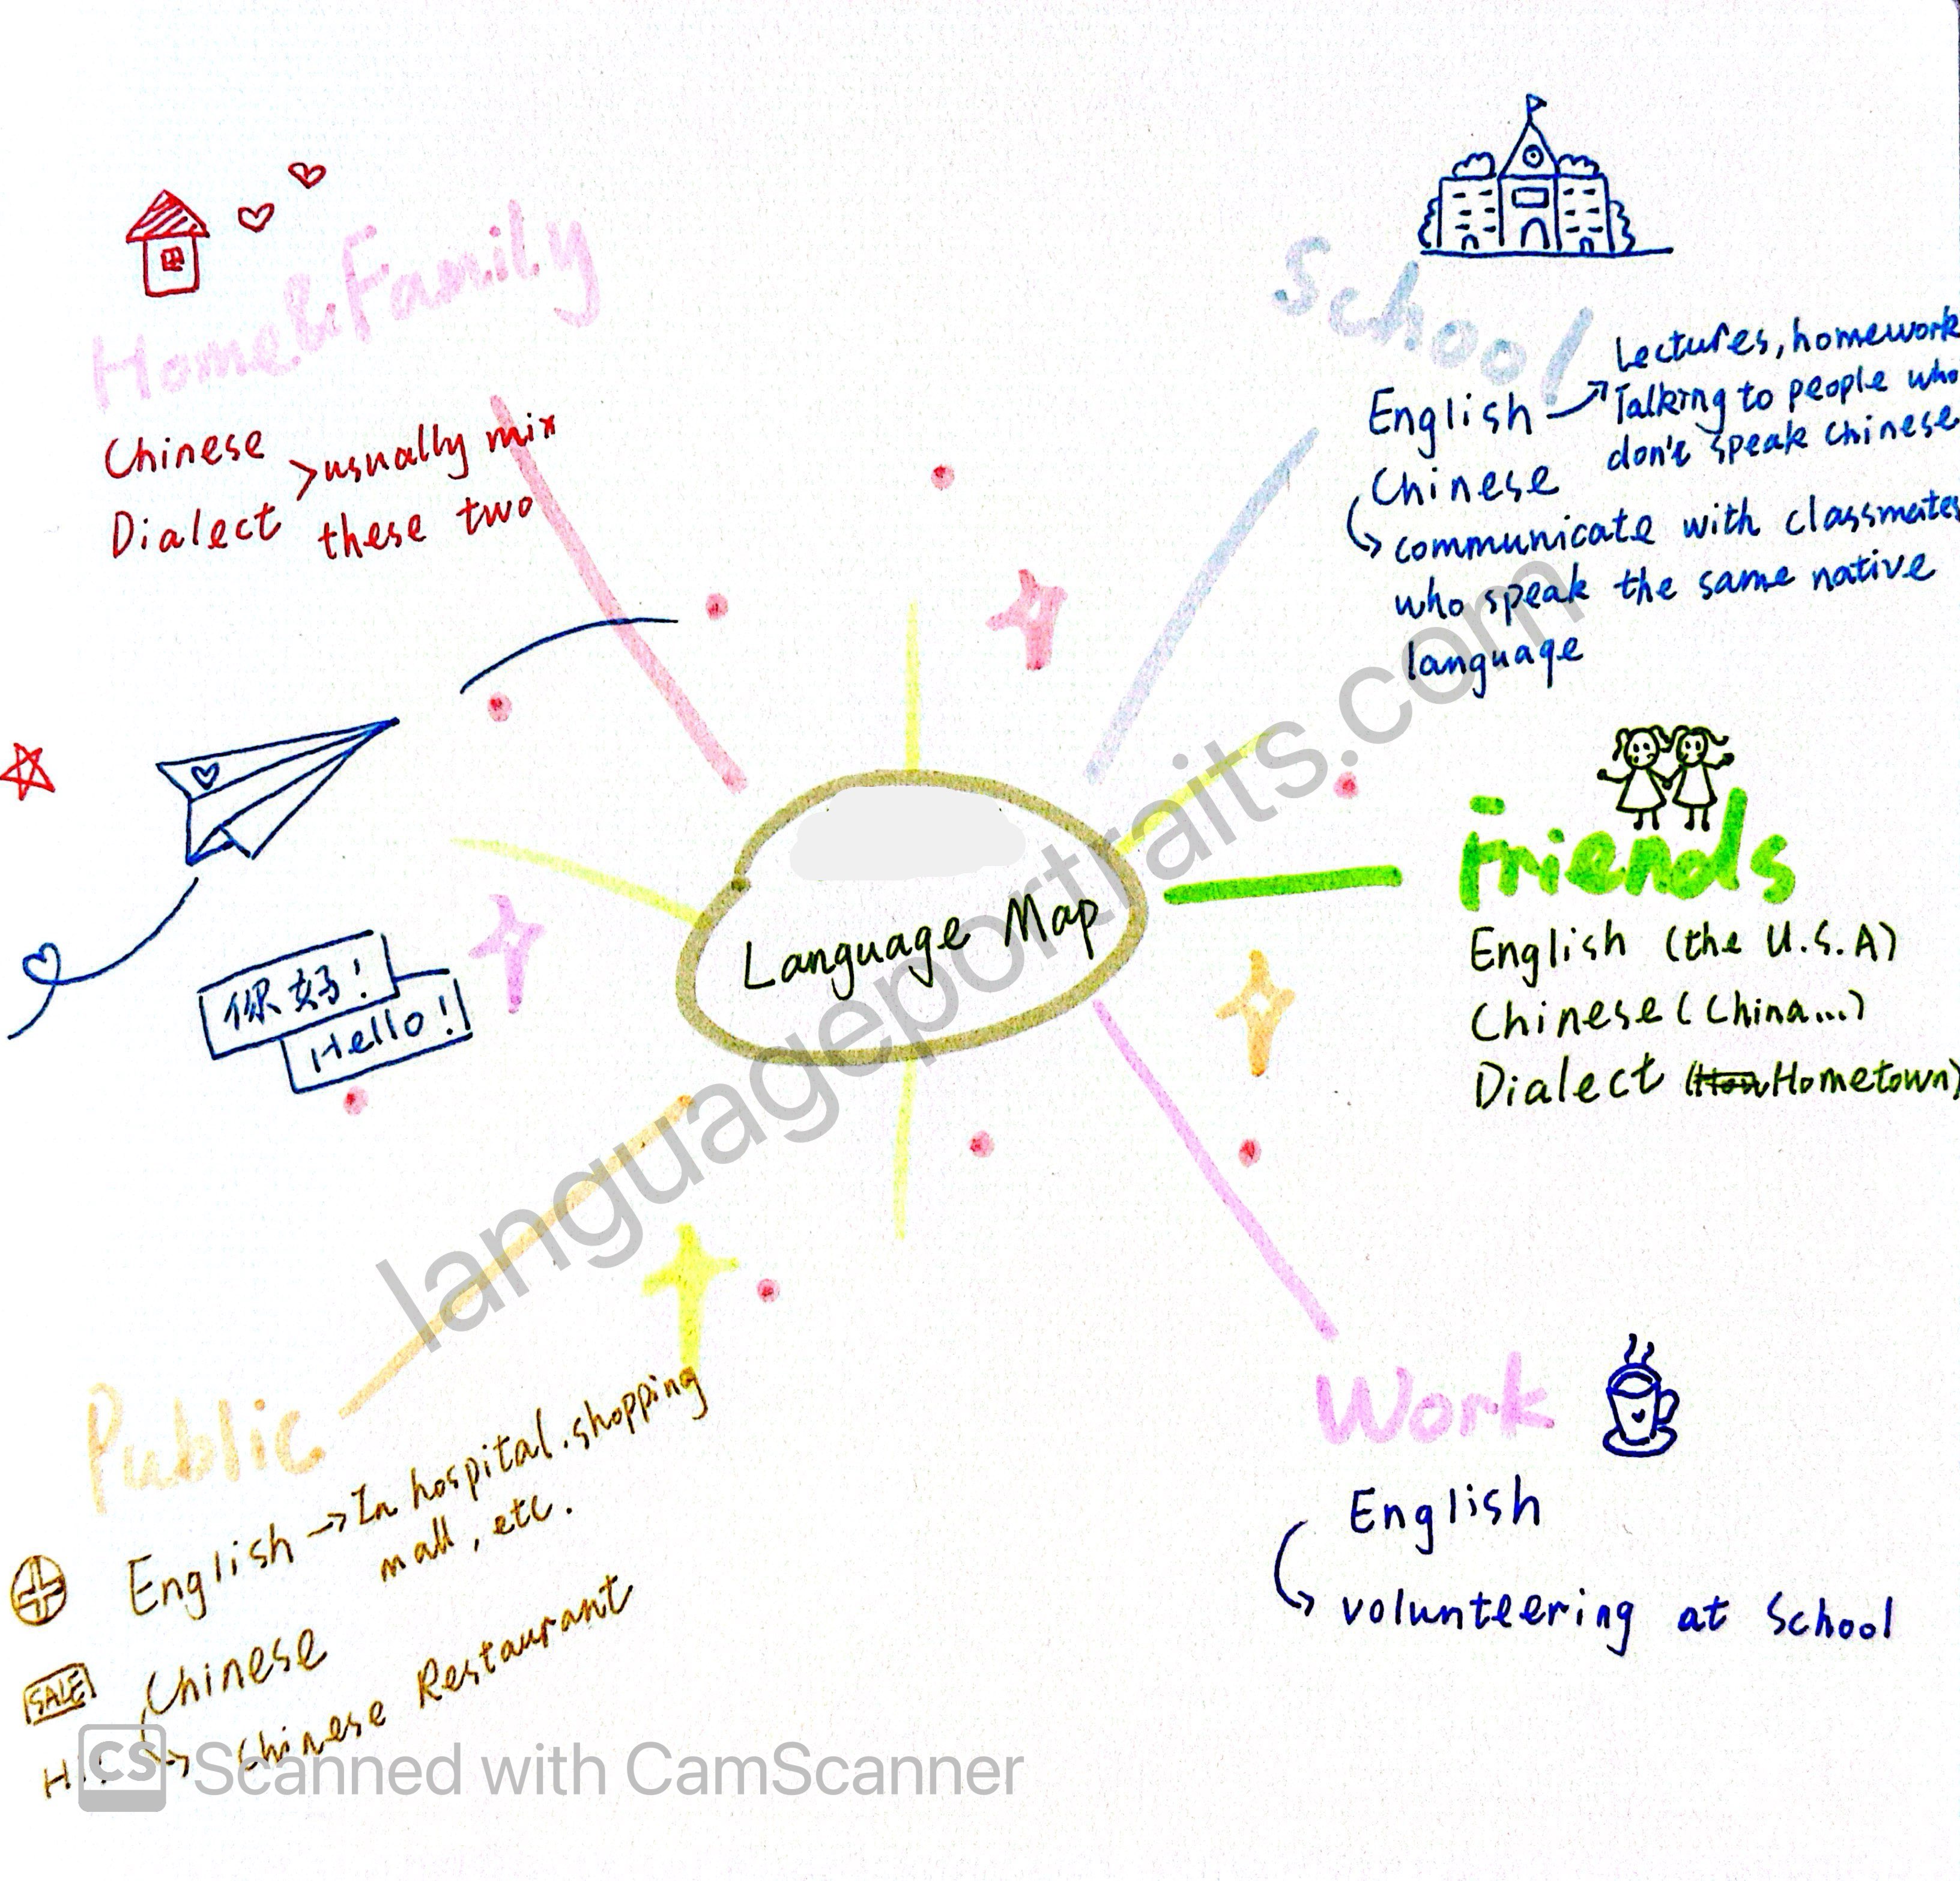 Home&Family
Chinese
Dialect
>usually mix
these two
School
English
Lectures, homework
Talking to people who
don't speak Chinese
Chinese
communicate with classmates
who speak the same native
language
Friends
English (the U.S.A)
Chinese (China...)
Dialect (Hometown)
Language Map
你好!
Hello!
Public
English → In hospital. shopping
mall, etc.
Chinese
Chinese Restaurant
SALE
Work
English
volunteering at School
languageportraits.com
CS Scanned with CamScanner